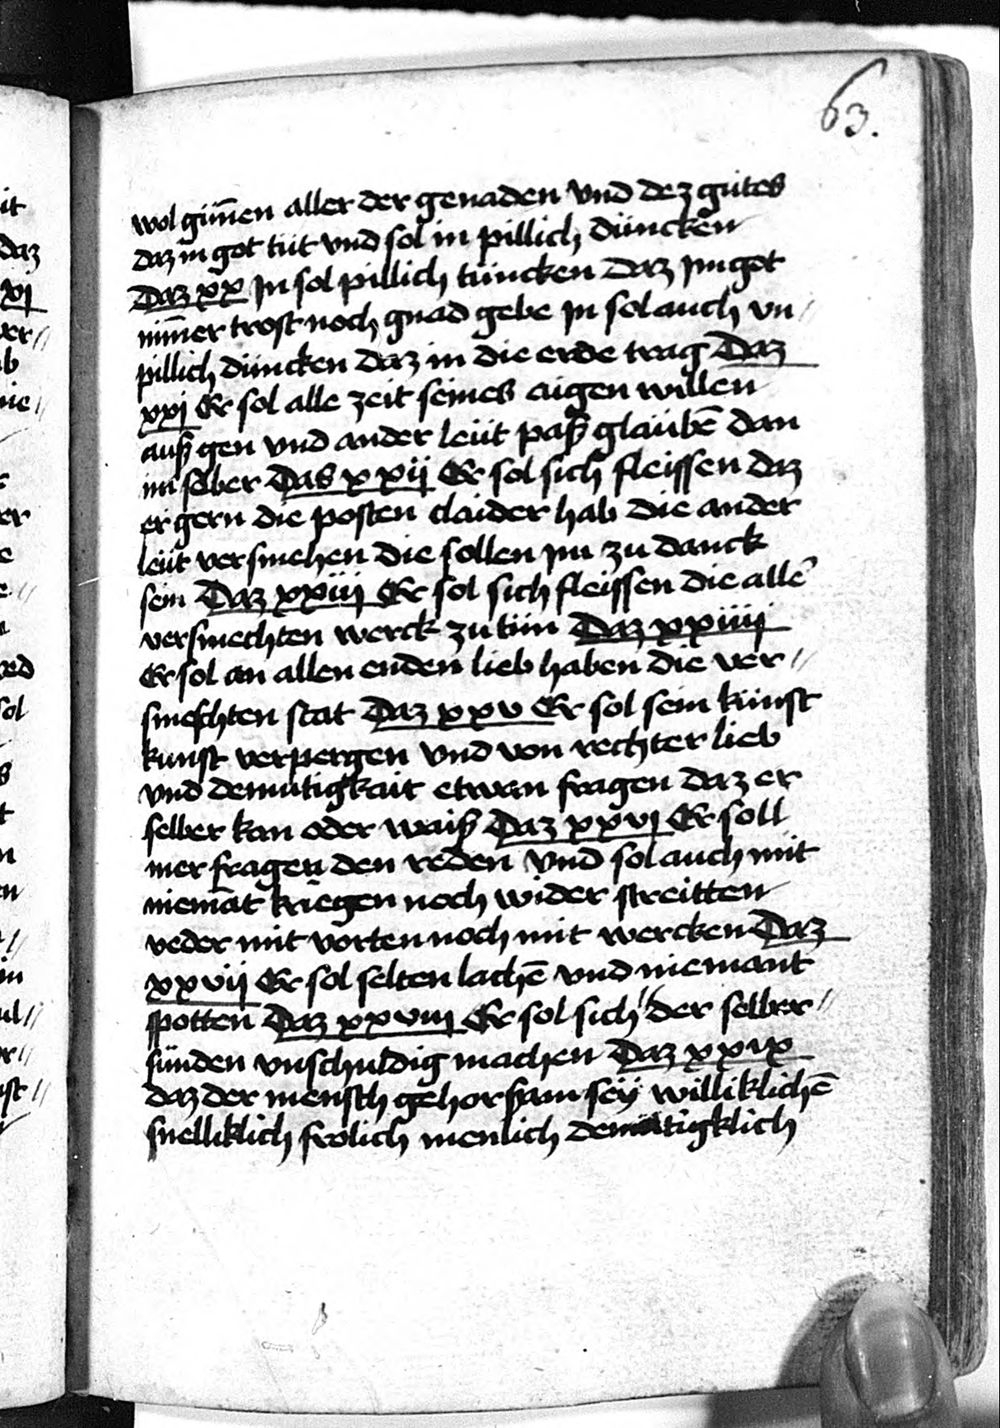 63.
wol giñen aller der genaden vnd dez gůtes
daz in got tůt vnd sol in pillich důncken
Daz xx In sol pillich tůncken daz im got
nim̃er trost noch gnad gebe in sol auch vn //
pillich důncken daz in die erde trag Daz
xxj Er sol alle zeit seines aigen willen
auß gen vnd ander leüt paß glaübē dan
im selber Das xxij Er sol sich fleissen daz
er gern die posten claider hab die ander
leüt versmehen die sollen im zu danck
sein Daz xxiij Er sol sich fleissen die alle
versmechten werck zu tün Daz xxiiij
Er sol an allen enden lieb haben die ver //
smechten stat Daz xxv Er sol sein künst
kunst verpergen vnd von rechter lieb
vnd demütigkait etwen fragen daz er
selber kan oder waiß Daz xxvj Er soll
mer fragen den reden vnd sol auch mit
niemāt kriegen noch wider streitten
veder mit vorten noch mit wercken Daz
xxvij Er sol selten lachē vnd niemant
spotten Daz xxviij Er sol sich der selber //
sünden vnschuldig machen Daz xxix
daz der mensch gehorsam sey williklichē
snelliklich frolich menlich demütigklich